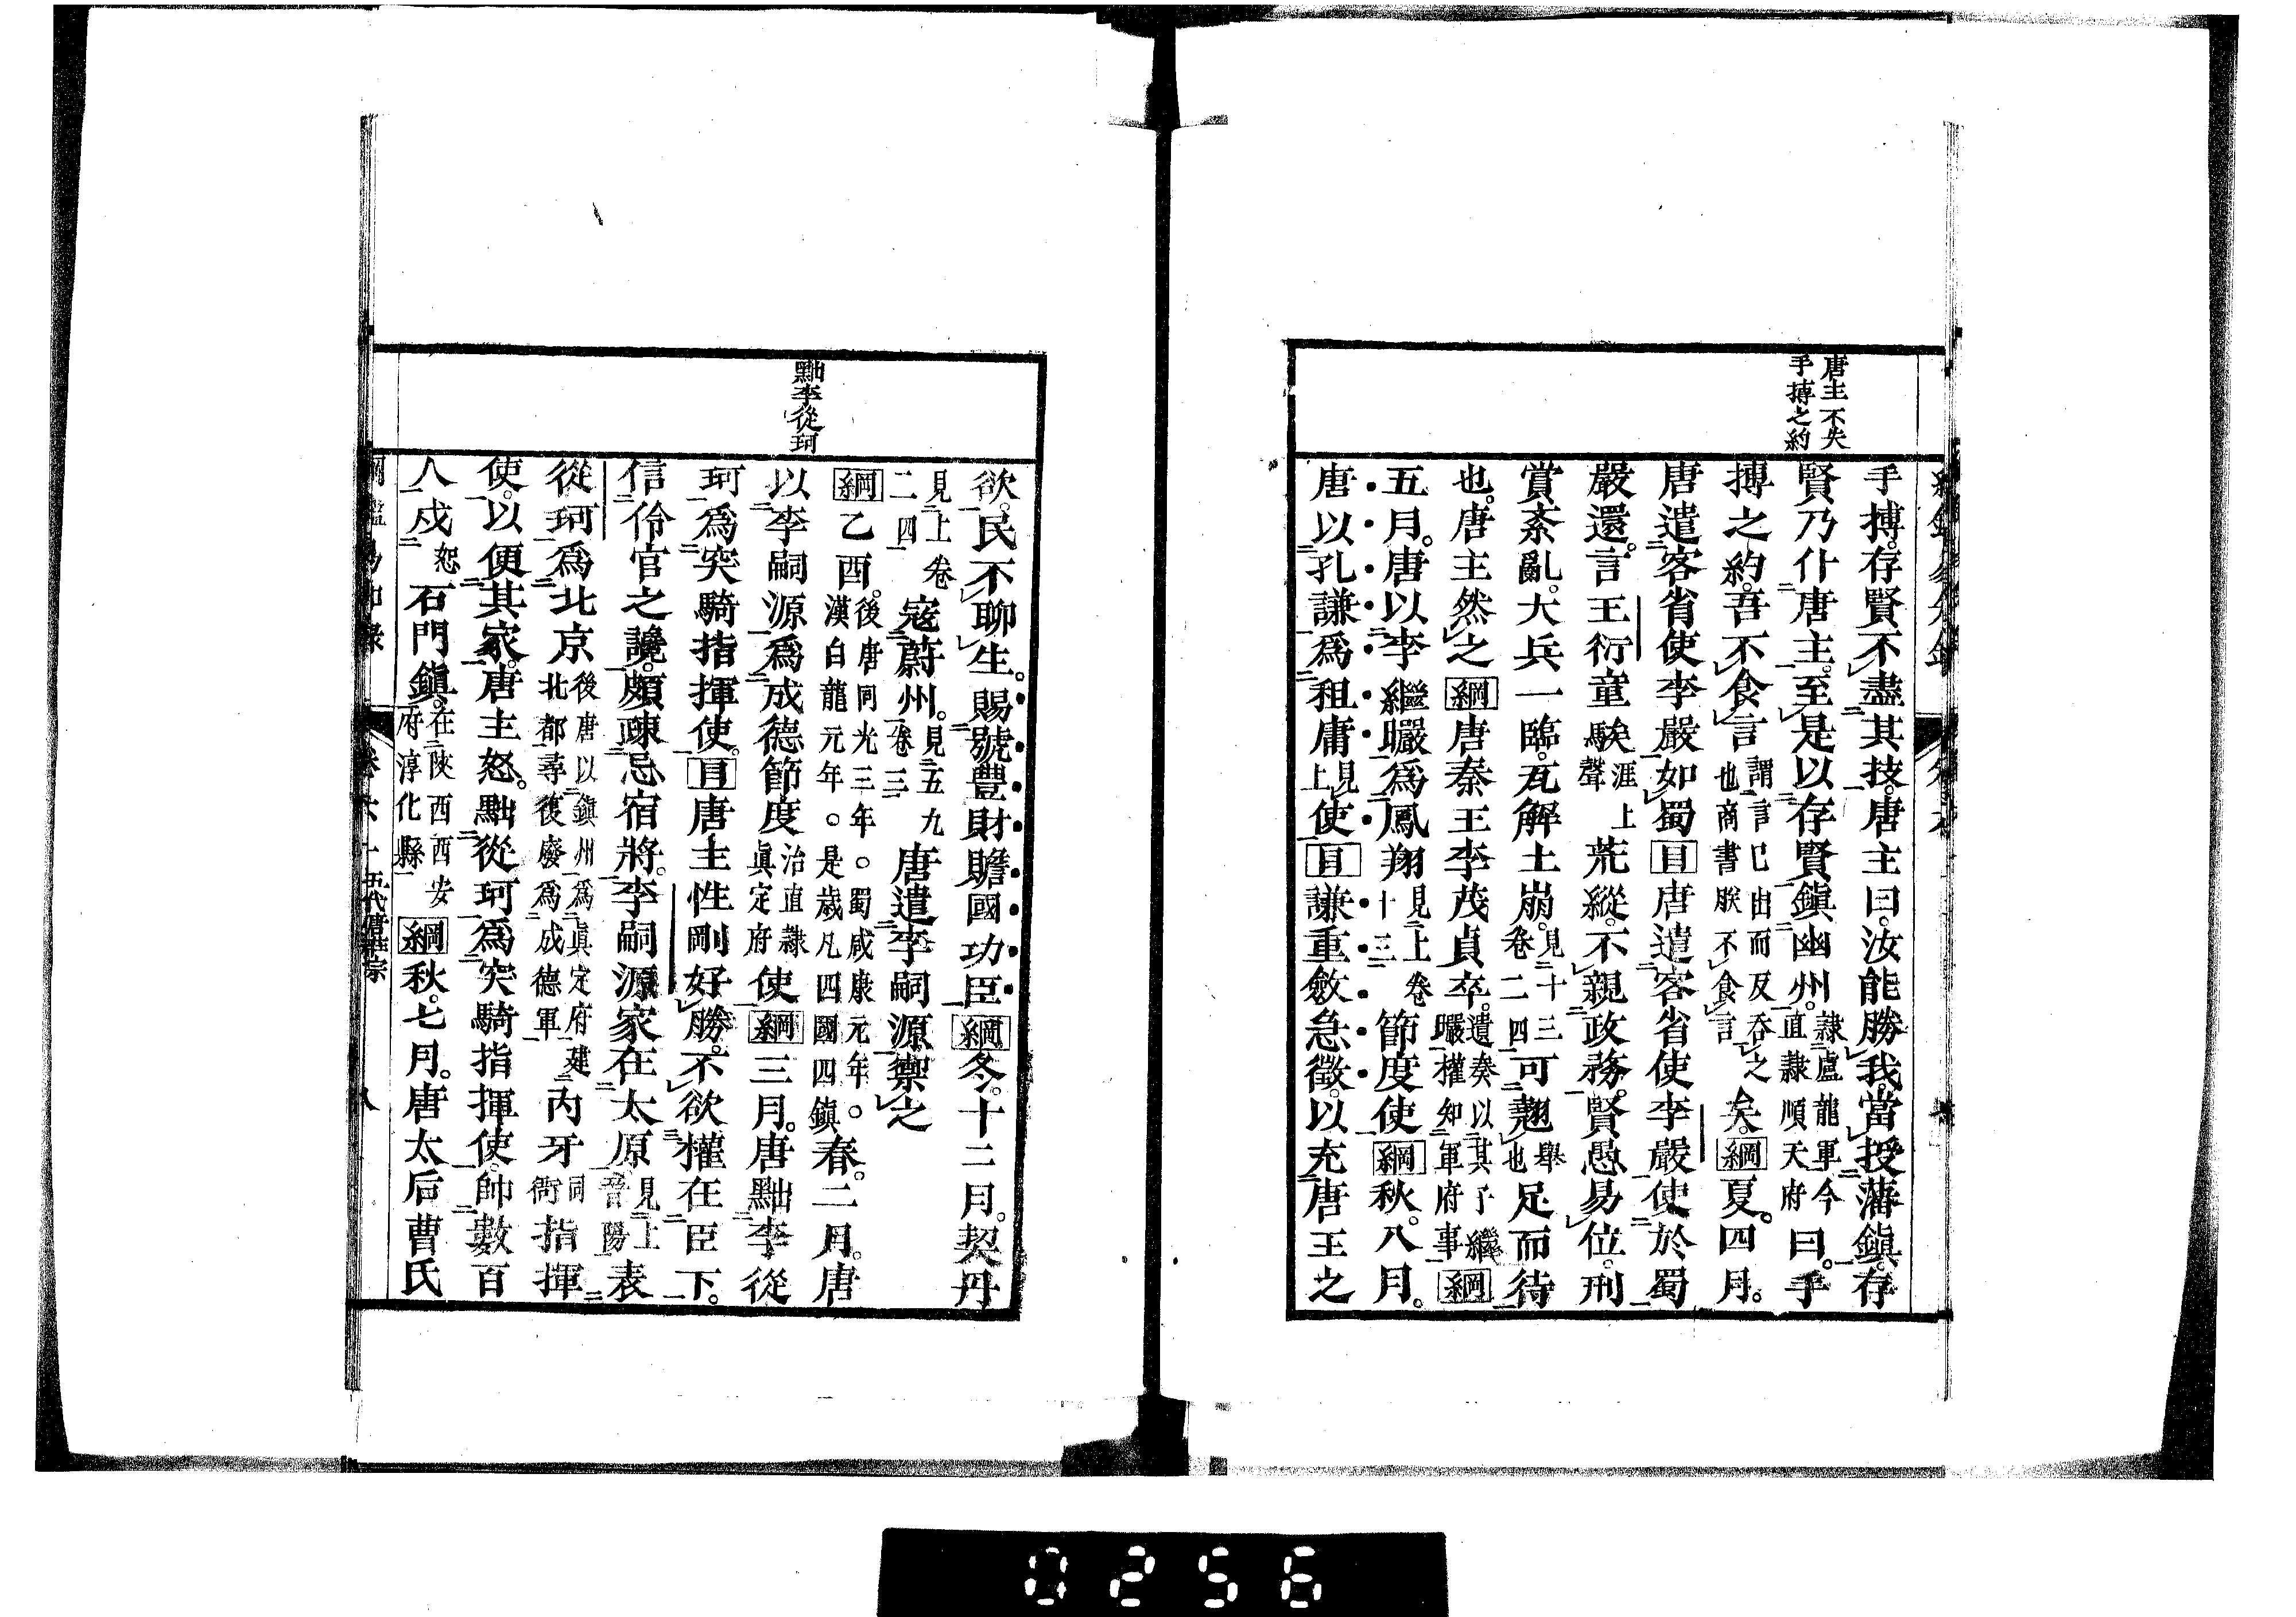 唐主不失
手搏之約
手搏。存賢不盡其技。唐主曰。汝能勝我。當授藩鎭。存
賢乃仆唐主。至是以存賢鎭幽州。隸盧龍軍今直隸順天府曰。手
搏之約。吾不食言謂言已出而反吞之也商書朕不食言矣。綱夏。四月。
唐遣客省使李嚴如蜀目唐遣客省使李嚴使於蜀
嚴還。言王衍童騃涯上聲荒縱。不親政務。賢愚易位。刑
賞紊亂。大兵一臨。瓦解土崩。見十三卷二四可翹舉也足而待
也。唐主然之綱唐秦王李茂貞卒。遺奏以其子繼曮權知軍府事綱
五月。唐以李繼曮爲鳳翔見上卷十三節度使綱秋。八月。
唐以孔謙爲租庸見上使目謙重斂急徵。以充唐王之
欲。民不聊生。賜號豐財贍國功臣綱冬。十二月。契丹
見上卷二四寇蔚州。見五九卷三唐遣李嗣源禦之
綱乙酉。後唐同光三年。蜀咸康元年。漢白龍元年。是歲凡四國四鎮春。二月。唐
以李嗣源爲成德節度治直隸眞定府使綱三月。唐黜李從
珂爲突騎指揮使。目唐主性剛好勝。不欲權在臣下。
信伶官之讒。頗疎忌宿將。李嗣源家在太原見上晉陽表
從珂爲北京後唐以鎮州爲眞定府建北都尋復廢爲成德軍内牙同衙指揮
使。以便其家。唐主怒。黜從珂爲突騎指揮使。帥數百
人戍恕石門鎭。在陜西西安府淳化縣綱秋。七月。唐太后曹氏
黜李從珂
五代唐莊宗
八
0256